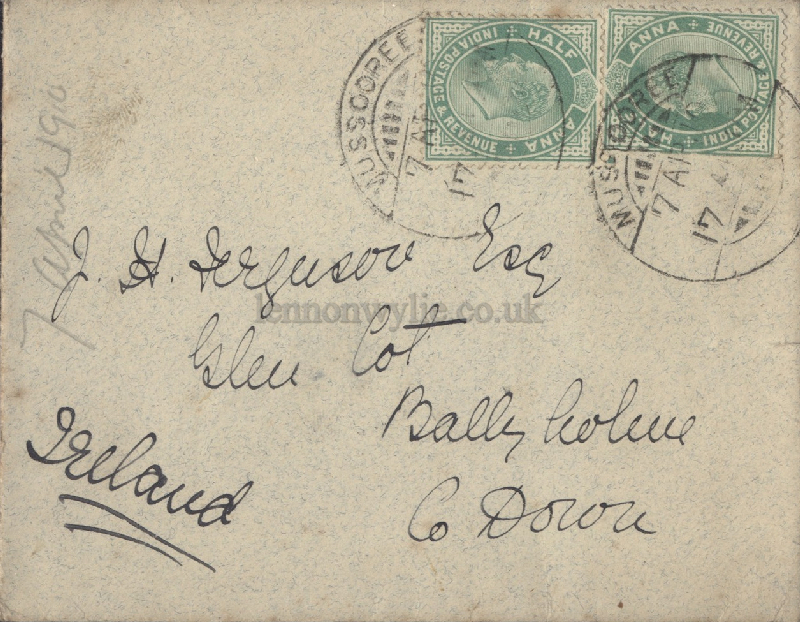 INDIA POSTAGE & REVENUE
HALF ANNA
INDIA POSTAGE & REVENUE
HALF ANNA
MUSSOOREE
7 AP
17
MUSSOOREE
7 AP
17
7 April 1910
J. H. Ferguson Esq
lennonwylie.co.uk
Glen Cot
Ballyholme
Co Down
Ireland